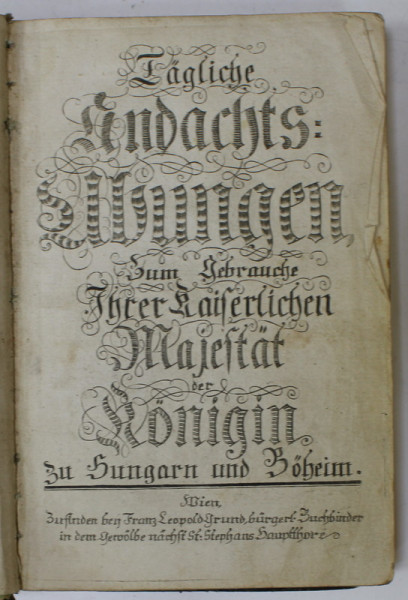 Tägliche
Andachts:
Übungen,
Zum Gebrauche
Ihrer Kaiserlichen
Majestät
der
Königin
zu Hungarn und Böheim.
Wien,
Zufinden bey Franz Leopold Grund, bürgerl. Buchbinder
in dem Gewölbe nächst St. Stephans Hauptthor